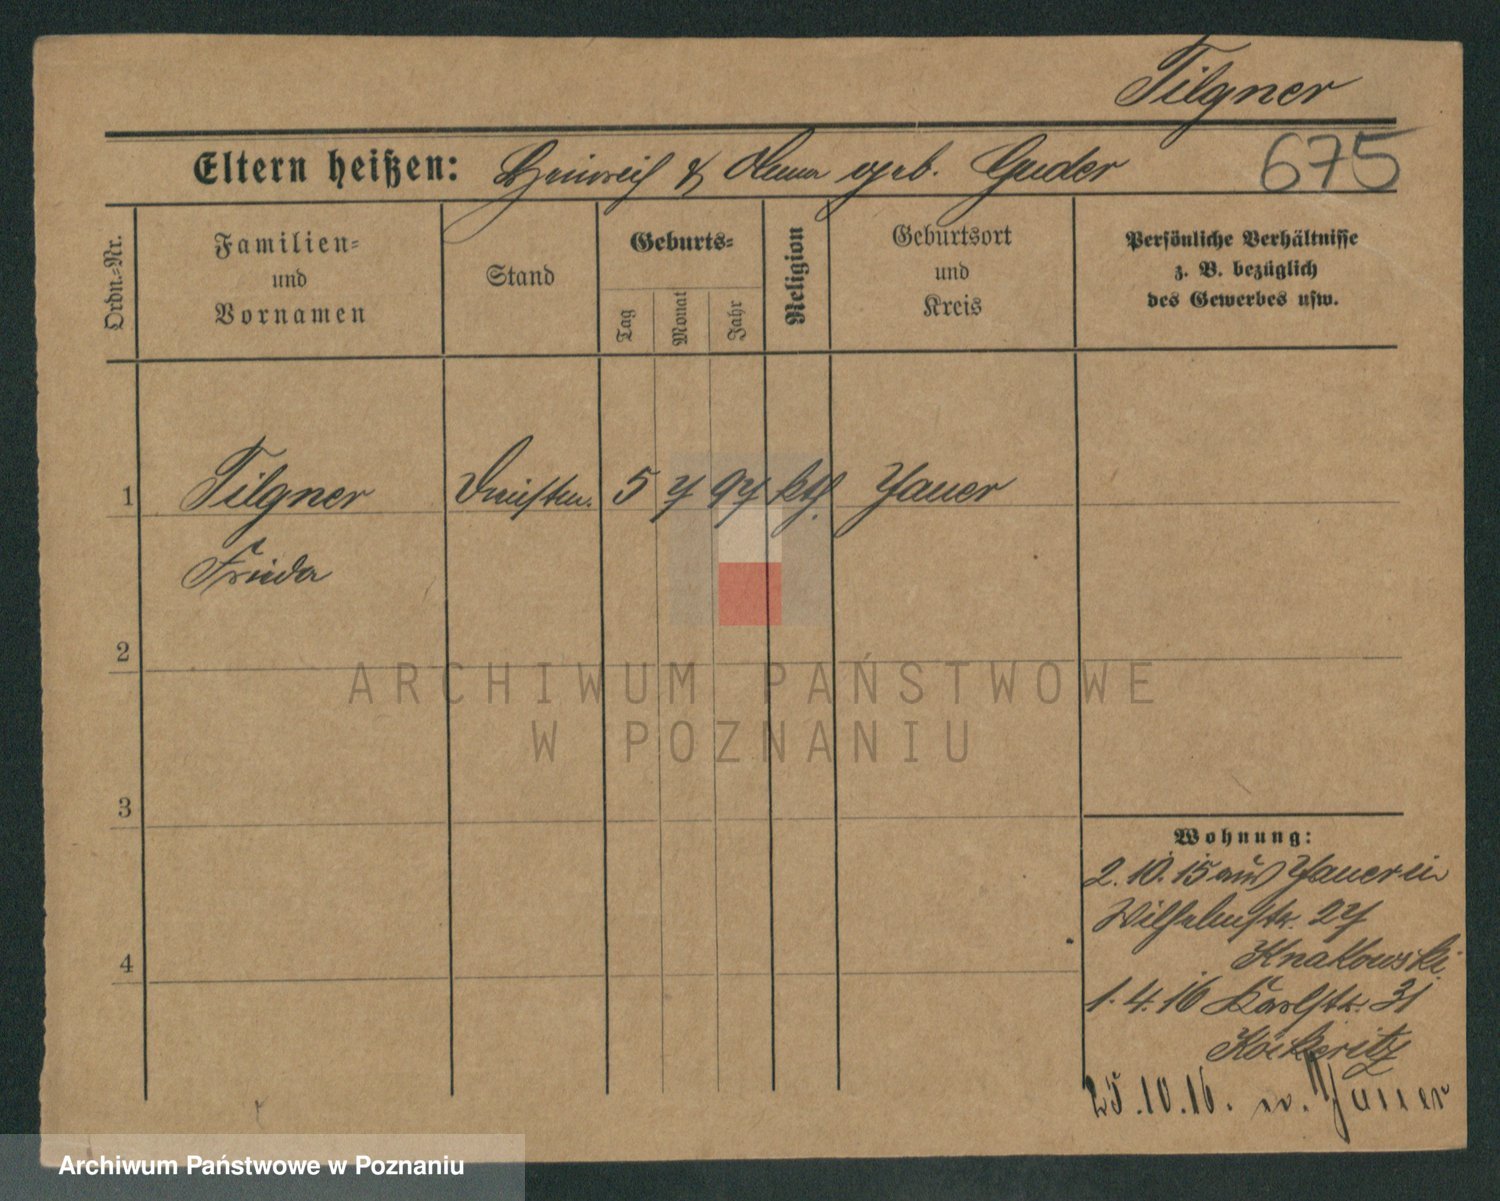 Tilgner
Eltern heißen: Heinrich & Anna geb. Guder
675
Ordn.-Nr.
Familien-
und
Vornamen
Stand
Geburts-
Tag
Monat
Jahr
Religion
Geburtsort
und
Kreis
Persönliche Verhältnisse
z. B. bezüglich
des Gewerbes usw.
1 Tilgner 5 7 97 kth. Jauer
Frieda
2
3
4
Wohnung:
2.10.15 aus Jauer in
Wilhelmstr. 27
Knakowski
1.4.16 Karlstr. 31
Köckeritz
25.10.16. n. Jauer
ARCHIWUM PAŃSTWOWE
W POZNANIU
Archiwum Państwowe w Poznaniu